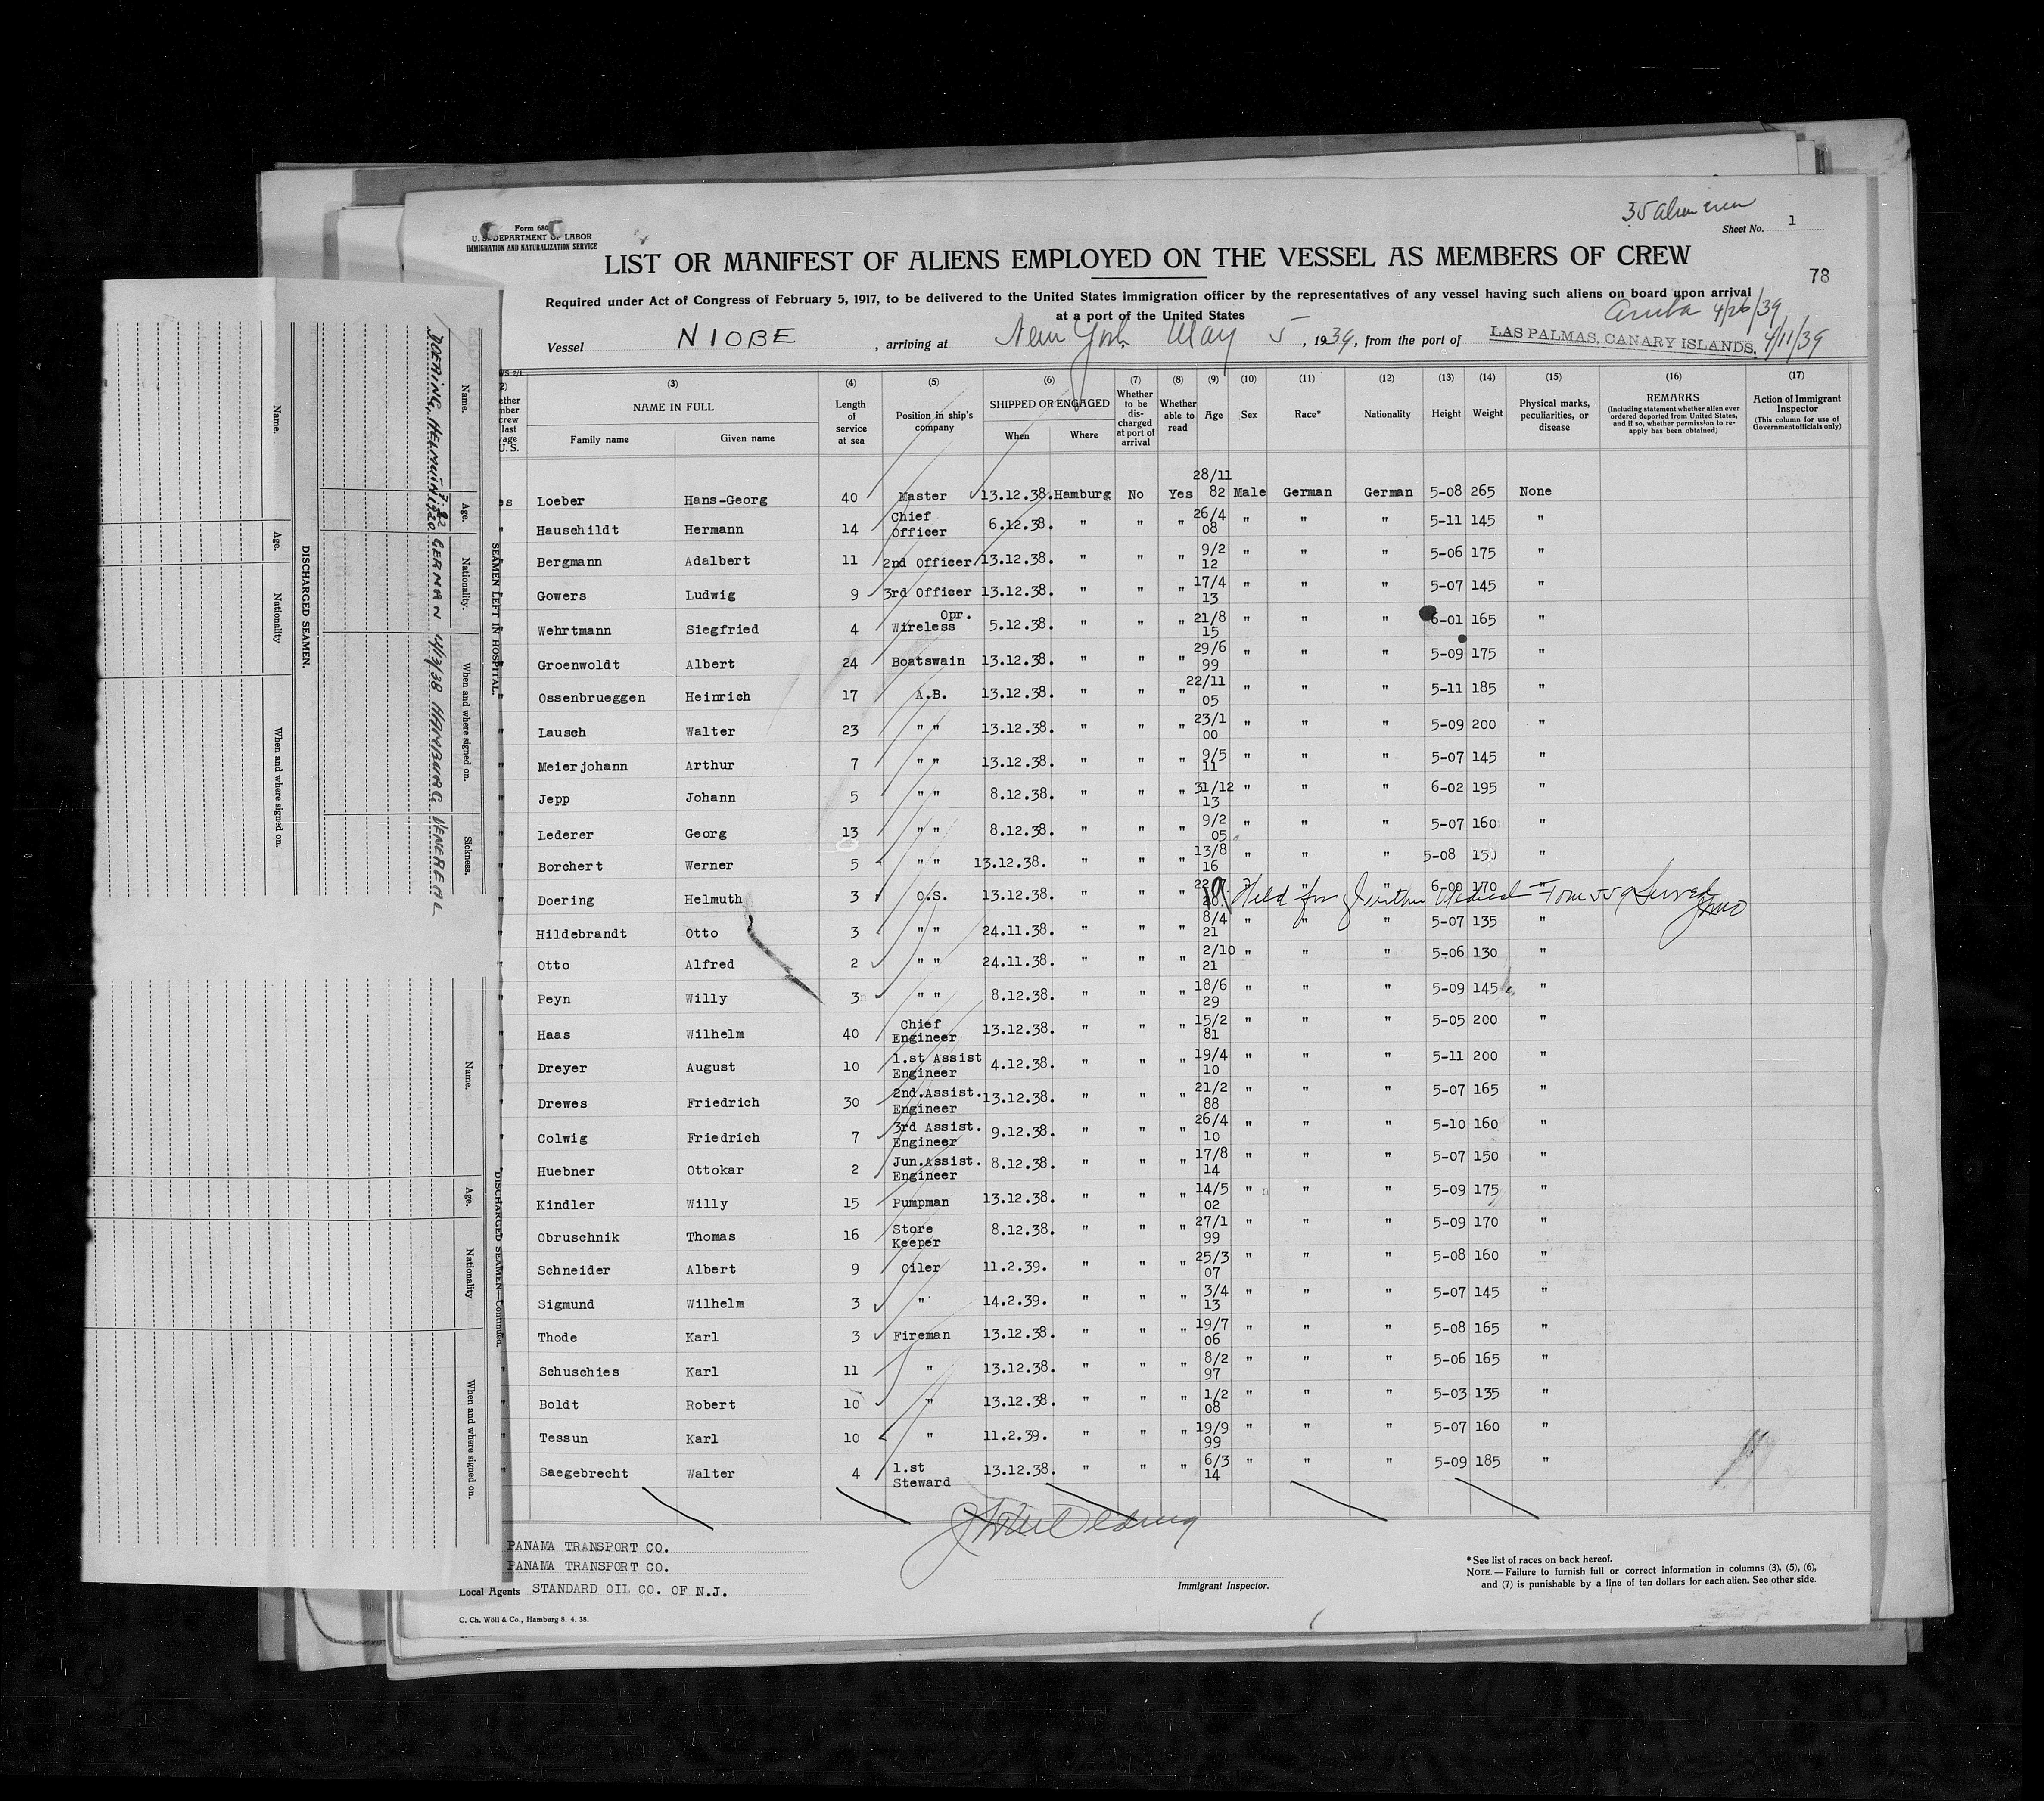 35 alien crew
Form 680
U. S. DEPARTMENT OF LABOR
IMMIGRATION AND NATURALIZATION SERVICE
Sheet No. 1
LIST OR MANIFEST OF ALIENS EMPLOYED ON THE VESSEL AS MEMBERS OF CREW
78
Required under Act of Congress of February 5, 1917, to be delivered to the United States Immigration officer by the representatives of any vessel having such aliens on board upon arrival
at a port of the United States
Aruba 4/26/39
Vessel NIOBE, arriving at New York May 5, 1939, from the port of LAS PALMAS, CANARY ISLANDS. 4/11/39
(3) (4) (5) (6) (7) (8) (9) (10) (11) (12) (13) (14) (15) (16) (17)
NAME IN FULL Family name Given name Length of service at sea Position in ship's company SHIPPED OR ENGAGED When Where Whether to be discharged at port of arrival Whether able to read Age Sex Race* Nationality Height Weight Physical marks, peculiarities, or disease REMARKS (Including statement whether alien ever ordered deported from United States, and if so, whether permission to re-apply has been obtained) Action of Immigrant Inspector (This column for use of Government officials only)
es Loeber Hans-Georg 40 Master 13.12.38. Hamburg No Yes 28/11 82 Male German German 5-08 265 None
" Hauschildt Hermann 14 Chief Officer 6.12.38. " " " 26/4 08 " " " 5-11 145 "
" Bergmann Adalbert 11 2nd Officer 13.12.38. " " " 9/2 12 " " " 5-06 175 "
" Gowers Ludwig 9 3rd Officer 13.12.38. " " " 17/4 13 " " " 5-07 145 "
" Wehrtmann Siegfried 4 Wireless Opr. 5.12.38. " " " 21/8 15 " " " 6-01 165 "
" Groenwoldt Albert 24 Boatswain 13.12.38. " " " 29/6 99 " " " 5-09 175 "
" Ossenbrueggen Heinrich 17 A.B. 13.12.38. " " " 22/11 05 " " " 5-11 185 "
" Lausch Walter 23 " " 13.12.38. " " " 23/1 00 " " " 5-09 200 "
" Meierjohann Arthur 7 " " 13.12.38. " " " 9/5 11 " " " 5-07 145 "
" Jepp Johann 5 " " 8.12.38. " " " 31/12 13 " " " 6-02 195 "
" Lederer Georg 13 " " 8.12.38. " " " 9/2 05 " " " 5-07 160 "
" Borchert Werner 5 " " 13.12.38. " " " 13/8 16 " " " 5-08 150 "
" Doering Helmuth 3 O.S. 13.12.38. " " " " " " 6-00 170 "
Held for further Medical Form 559 Served
" Hildebrandt Otto 3 " " 24.11.38. " " " 8/4 21 " " " 5-07 135 "
" Otto Alfred 2 " " 24.11.38. " " " 2/10 21 " " " 5-06 130 "
" Peyn Willy 3 " " 8.12.38. " " " 18/6 29 " " " 5-09 145 "
" Haas Wilhelm 40 Chief Engineer 13.12.38. " " " 15/2 81 " " " 5-05 200 "
" Dreyer August 10 1.st Assist Engineer 4.12.38. " " " 19/4 10 " " " 5-11 200 "
" Drewes Friedrich 30 2nd.Assist. Engineer 13.12.38. " " " 21/2 88 " " " 5-07 165 "
" Colwig Friedrich 7 3rd Assist. Engineer 9.12.38. " " " 26/4 10 " " " 5-10 160 "
" Huebner Ottokar 2 Jun.Assist. Engineer 8.12.38. " " " 17/8 14 " " " 5-07 150 "
" Kindler Willy 15 Pumpman 13.12.38. " " " 14/5 02 " " " 5-09 175 "
" Obruschnik Thomas 16 Store Keeper 8.12.38. " " " 27/1 99 " " " 5-09 170 "
" Schneider Albert 9 Oiler 11.2.39. " " " 25/3 07 " " " 5-08 160 "
" Sigmund Wilhelm 3 " 14.2.39. " " " 3/4 13 " " " 5-07 145 "
" Thode Karl 3 Fireman 13.12.38. " " " 19/7 06 " " " 5-08 165 "
" Schuschies Karl 11 " 13.12.38. " " " 8/2 97 " " " 5-06 165 "
" Boldt Robert 10 " 13.12.38. " " " 1/2 08 " " " 5-03 135 "
" Tessun Karl 10 " 11.2.39. " " " 19/9 99 " " " 5-07 160 "
" Saegebrecht Walter 4 1.st Steward 13.12.38. " " " 6/3 14 " " " 5-09 185 "
PANAMA TRANSPORT CO.
PANAMA TRANSPORT CO.
Local Agents STANDARD OIL CO. OF N.J.
Immigrant Inspector.
*See list of races on back hereof.
NOTE.—Failure to furnish full or correct information in columns (3), (5), (6),
and (7) is punishable by a fine of ten dollars for each alien. See other side.
C. Ch. Wöll & Co., Hamburg 8. 4. 38.
SEAMEN LEFT IN HOSPITAL.
Name. Age. Nationality. When and where signed on. Sickness.
DOERING, HELMUTH GERMAN HAMBURG VENEREAL
DISCHARGED SEAMEN.
Name. Age. Nationality When and where signed on.
DISCHARGED SEAMEN—Continued.
Name. Age. Nationality When and where signed on.